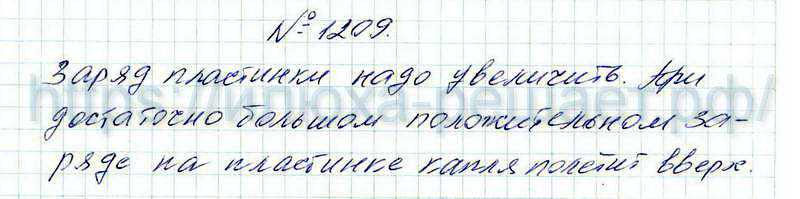 № 1209.
Заряд пластинки надо увеличить. При
достаточно большом положительном за-
ряде на пластинке капля полетит вверх.